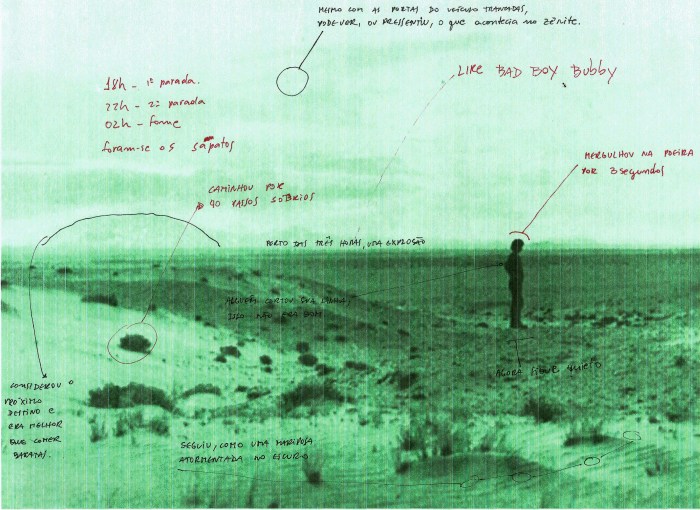 MESMO COM AS PORTAS DO VEÍCULO TRANCADAS,
PODE VER, OU PRESSENTIU, O QUE ACONTECIA NO ZÊNITE.
LIKE BAD BOY BUBBY
18h - 1ª parada.
22h - 2ª parada
02h - fome
foram-se os sapatos
MERGULHOU NA POEIRA
POR 3 SEGUNDOS
CAMINHOU POR
40 PASSOS SÓBRIOS
PERTO DAS TRÊS HORAS, UMA EXPLOSÃO
ALGUÉM CORTOU SUA LINHA
ISSO NÃO ERA BOM
AGORA FIQUE QUIETO
CONSIDEROU O
PRÓXIMO
DESTINO E
ERA MELHOR
QUE COMER
BARATAS.
SEGUIU, COMO UMA MARIPOSA
ATORMENTADA NO ESCURO